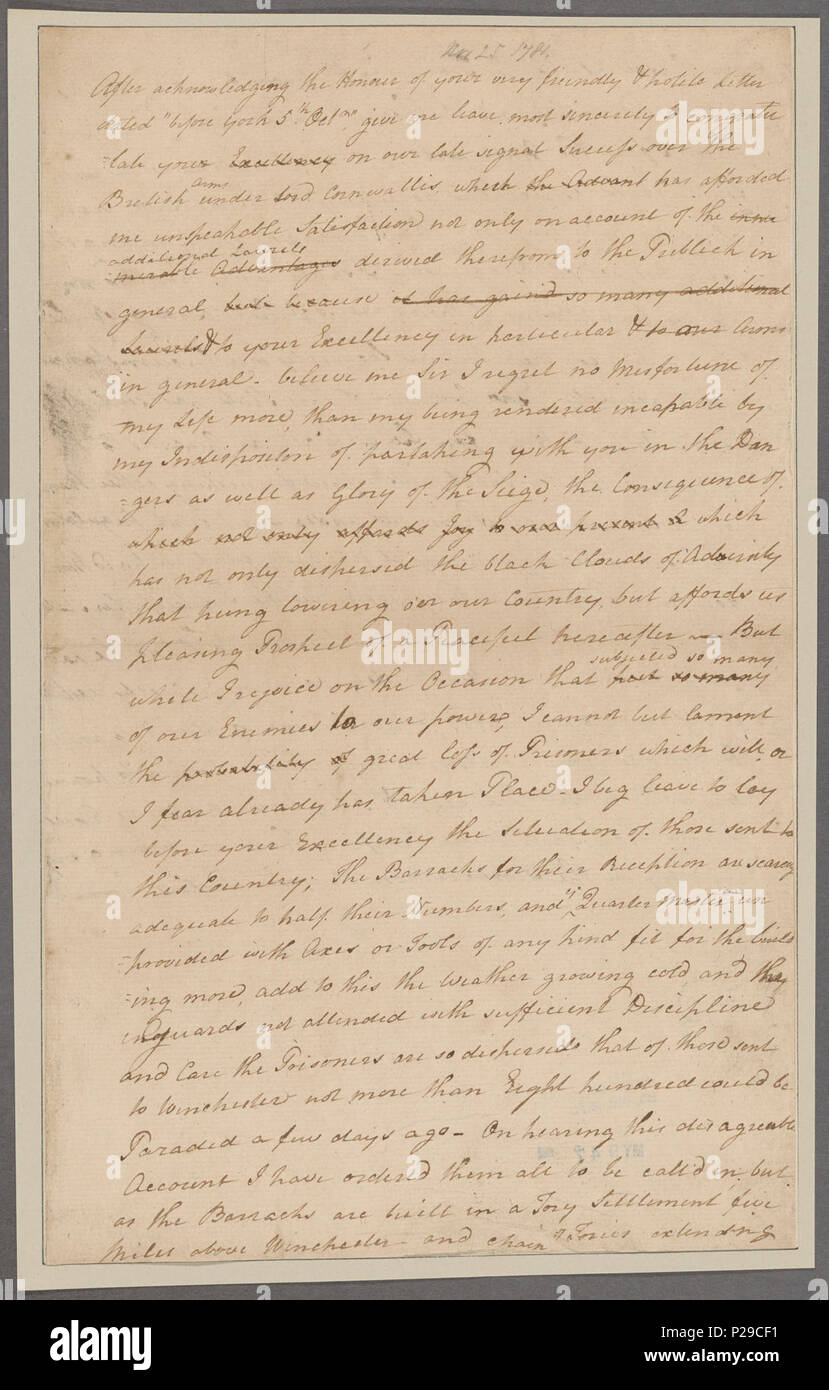 Nov 25 1781.
After acknowledging the Honour of your very friendly & polite Letter
dated "before York 5th Octbr", give me leave most sincerely to congratu
-late your Excellency on our late signal Success over the
British arms under Lord Cornwallis, which the Advant has afforded
me unspeakable Satisfaction not only on account of the innu
additional Laurels
merable Advantages derived therefrom to the Publick in
general, but because it has gain'd so many additional
Laurels & to your Excellency in particular & to our Arms
in general - believe me Sir I regret no Misfortune of
my Life more, than my being rendered incapable by
my Indisposition of partaking with you in the Dan
-gers as well as Glory of the Siege, the Consequence of
which not only affords Joy to our present & which
has not only dispersed the black Clouds of Adversity
that hung lowering o'er our Country, but affords us
pleasing Prospect of a Peaceful hereafter — But
while I rejoice on the Occasion that subjected so many
has so many
of our Enemies to our power, I cannot but lament
the probability of great loss of Prisoners which will, or
I fear already has taken Place - I beg leave to lay
before your Excellency the Situation of those sent to
this Country; The Barracks for their Reception are scarcely
adequate to half their Numbers, and Quarter Master un
-provided with Axes or Tools of any kind fit for the build
-ing more, add to this the Weather growing cold and they
guards not attended with sufficient Discipline
and Care the Prisoners are so dispersed that of those sent
to Winchester not more than Eight hundred could be
Paraded a few days ago - On hearing this disagreeable
Account I have ordered them all to be call'd in, but
as the Barracks are built in a Tory Settlement five
Miles above Winchester - and chain of Tories extending
alamy
alamy
Image ID: P29CF1
www.alamy.com